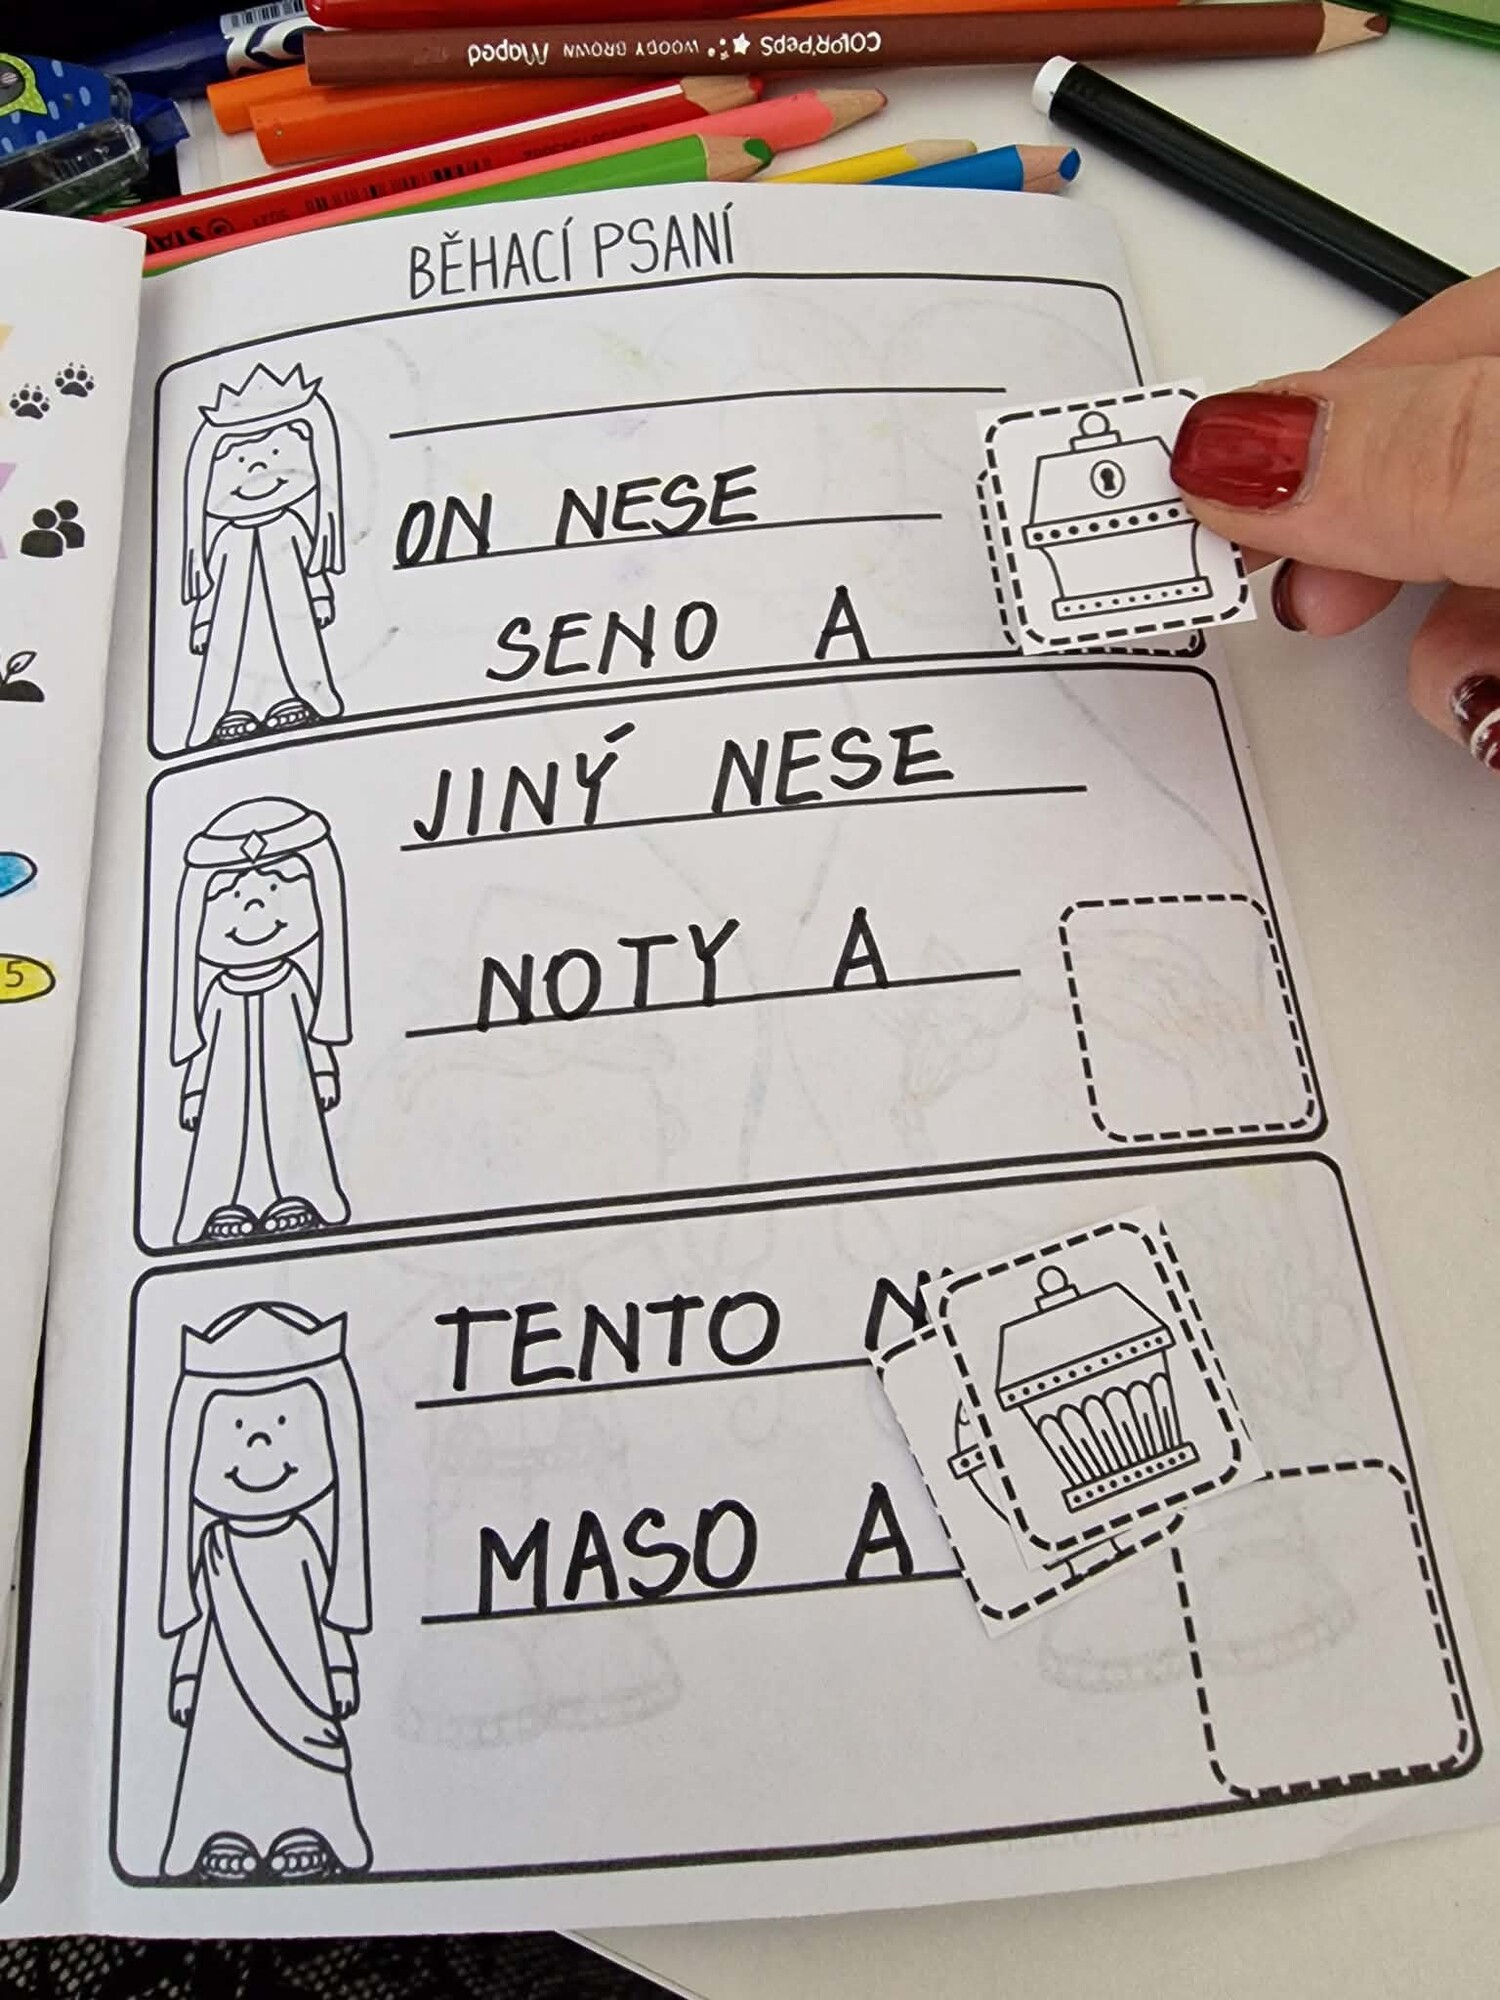 COLOR'PEPS WOODY BROWN Maped
BĚHACÍ PSANÍ
ON NESE
SENO A
JINÝ NESE
NOTY A
TENTO
MASO A
5